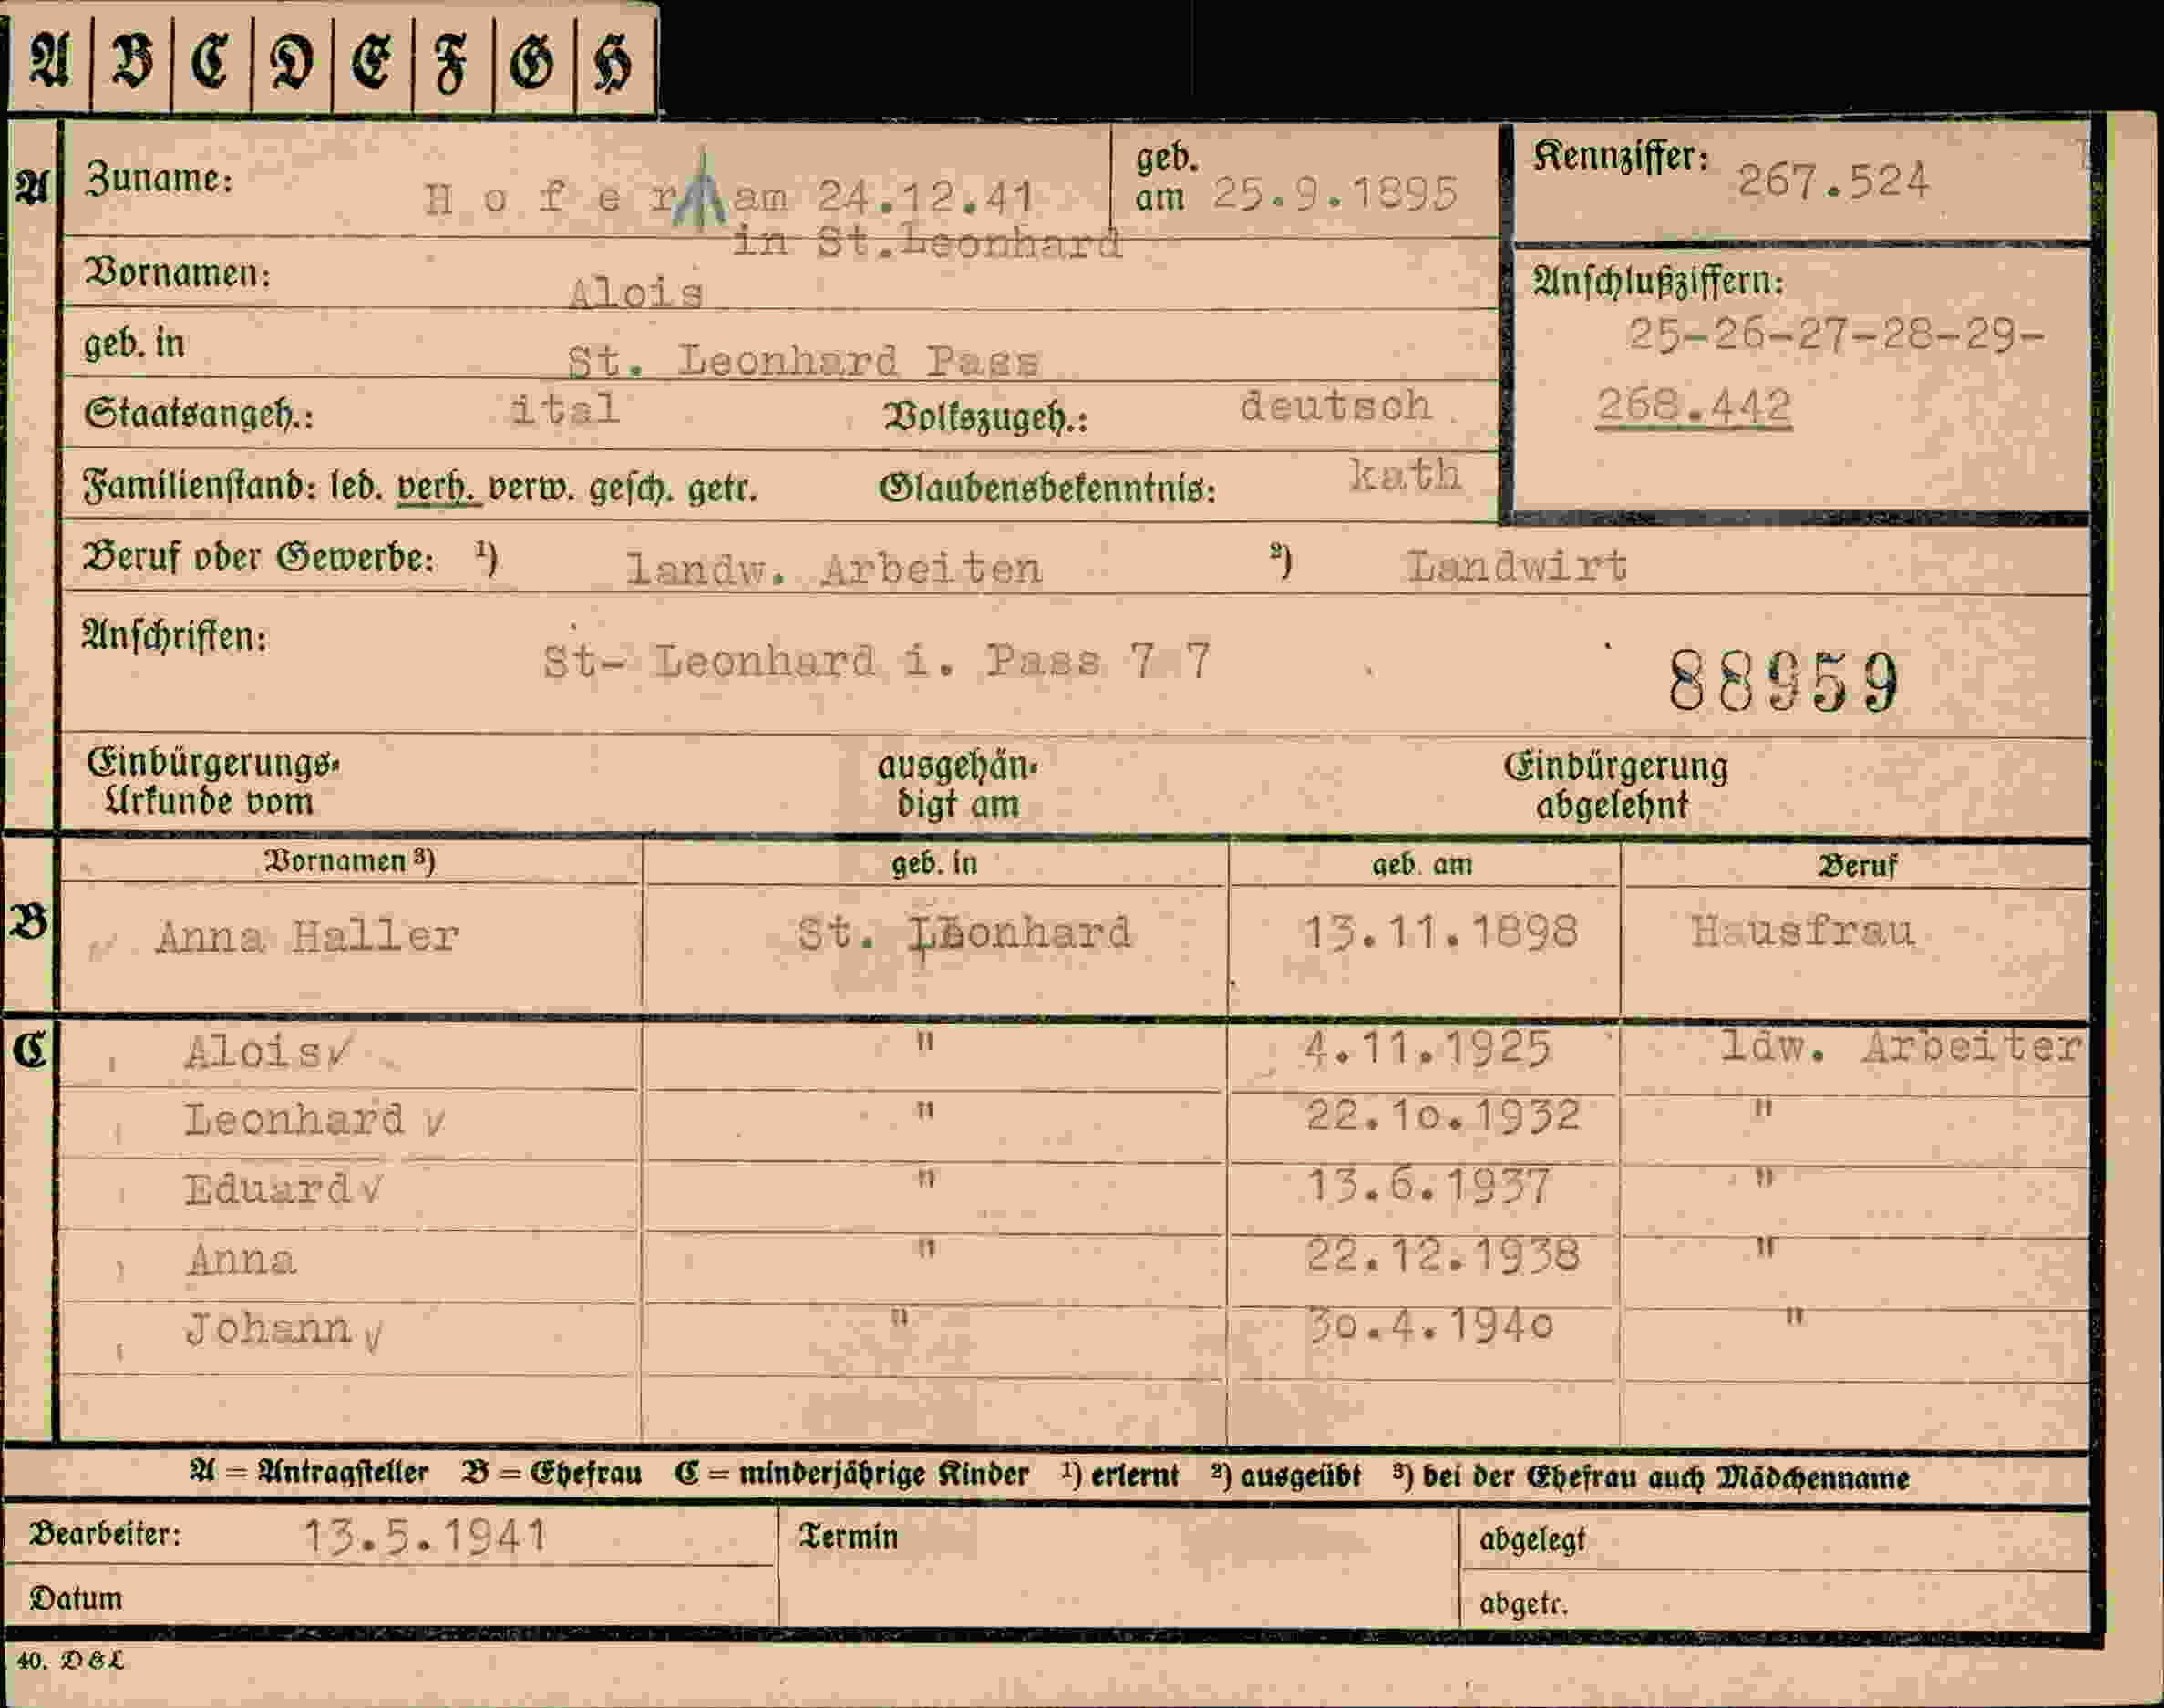 A B C D E F G H
A Zuname: H o f e r am 24.12.41 geb. am 25.9.1895 Kennziffer: 267.524
in St.Leonhard
Vornamen: Alois Anschlußziffern:
geb. in St. Leonhard Pass 25-26-27-28-29-
Staatsangeh.: ital Volkszugeh.: deutsch 268.442
Familienstand: led. verh. verw. gesch. getr. Glaubensbekenntnis: kath
Beruf oder Gewerbe: ¹) landw. Arbeiten ²) Landwirt
Anschriften: St- Leonhard i. Pass 7 7 88959
Einbürgerungs- ausgehän- Einbürgerung
Urkunde vom digt am abgelehnt
Vornamen ³) geb. in geb. am Beruf
B Anna Haller St. Leonhard 13.11.1898 Hausfrau
C Alois " 4.11.1925 ldw. Arbeiter
Leonhard " 22.10.1932 "
Eduard " 13.6.1937 "
Anna " 22.12.1938 "
Johann " 30.4.1940 "
A = Antragsteller B = Ehefrau C = minderjährige Kinder ¹) erlernt ²) ausgeübt ³) bei der Ehefrau auch Mädchenname
Bearbeiter: 13.5.1941 Termin abgelegt
Datum abgetr.
40. DGL